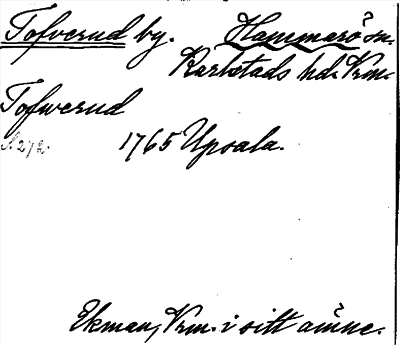 Tofverud by. Hammarö sn.
Karlstads hd. Vrm.
Tofwerud
s. 272.
1765 Upsala.
Ekman, Vrm. i sitt ämne.